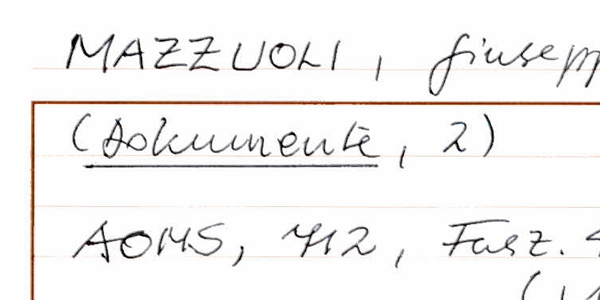 MAZZUOLI, Giusepp
(Dokumente, 2)
AOMS, 412, Fasz. 4